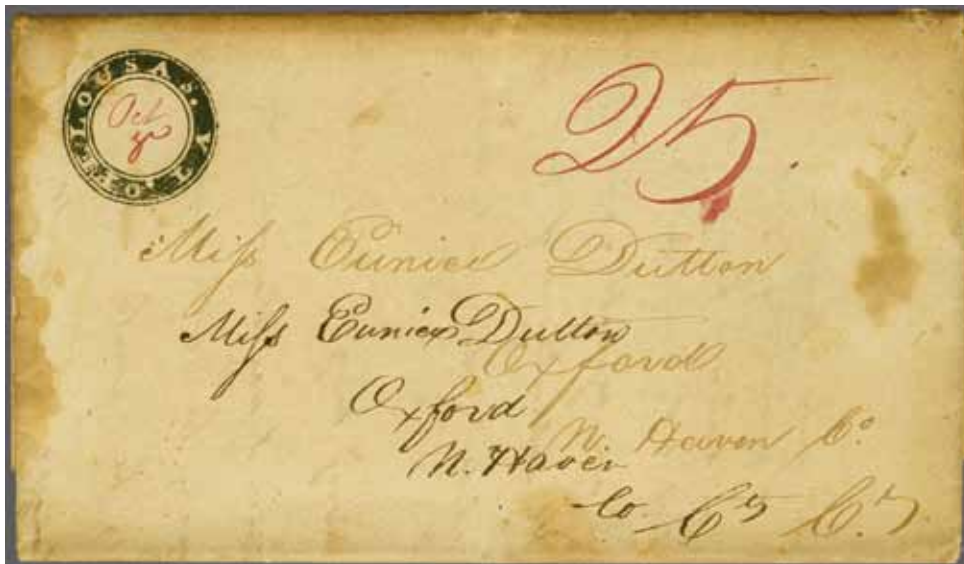 OPELOUSAS.
Oct
25
Miss Eunice Dutton
Miss Eunice Dutton
Oxford
Oxford
N. Haven Co
N. Haven
Co. Ct Ct